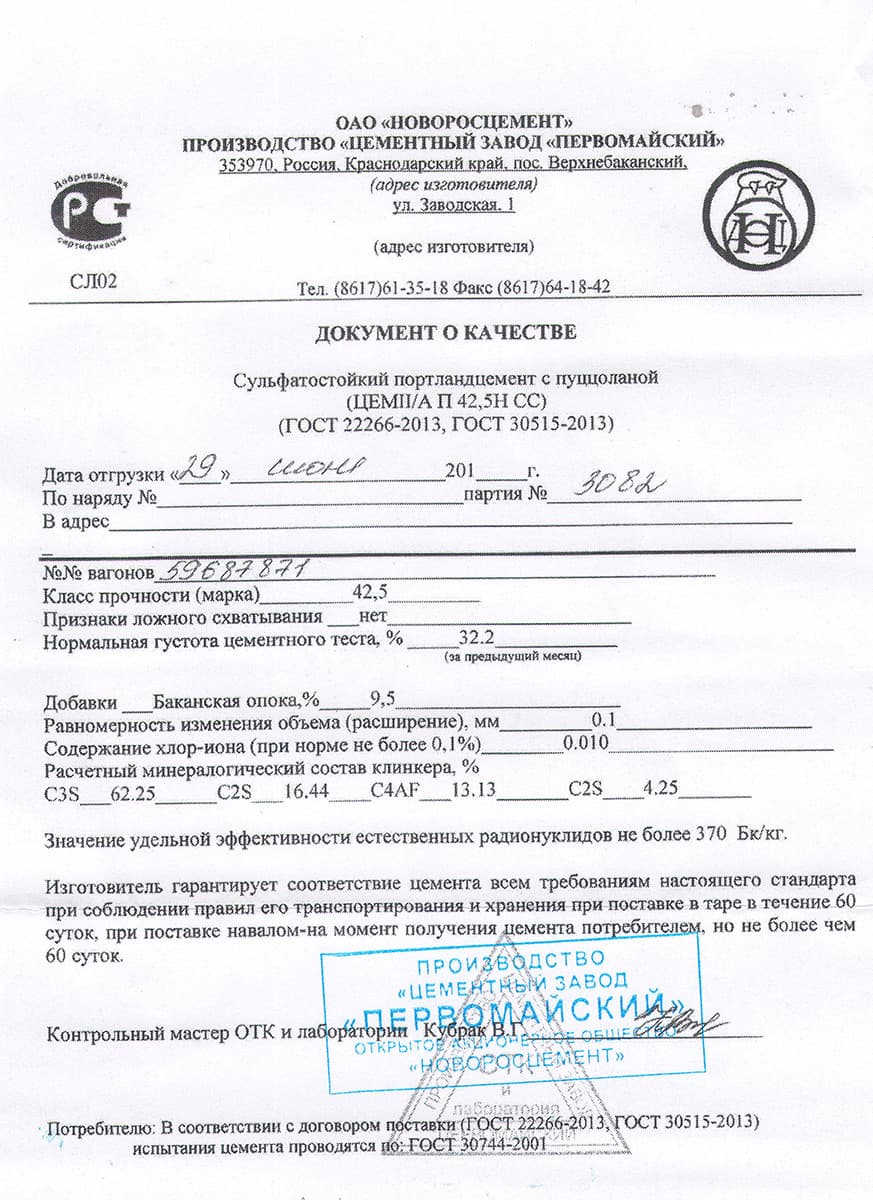 ОАО «НОВОРОСЦЕМЕНТ»
ПРОИЗВОДСТВО «ЦЕМЕНТНЫЙ ЗАВОД «ПЕРВОМАЙСКИЙ»
353970, Россия, Краснодарский край, пос. Верхнебаканский,
(адрес изготовителя)
ул. Заводская, 1
(адрес изготовителя)
Добровольная
РСТ
сертификация
СЛ02
Тел. (8617)61-35-18 Факс (8617)64-18-42
ДОКУМЕНТ О КАЧЕСТВЕ
Сульфатостойкий портландцемент с пуццоланой
(ЦЕМII/А П 42,5Н СС)
(ГОСТ 22266-2013, ГОСТ 30515-2013)
Дата отгрузки «29» июня 201 г.
По наряду № партия № 3082
В адрес
№№ вагонов 59687871
Класс прочности (марка) 42,5
Признаки ложного схватывания нет
Нормальная густота цементного теста, % 32.2
(за предыдущий месяц)
Добавки Баканская опока,% 9,5
Равномерность изменения объема (расширение), мм 0.1
Содержание хлор-иона (при норме не более 0,1%) 0.010
Расчетный минералогический состав клинкера, %
C3S 62.25 C2S 16.44 C4AF 13.13 C2S 4.25
Значение удельной эффективности естественных радионуклидов не более 370 Бк/кг.
Изготовитель гарантирует соответствие цемента всем требованиям настоящего стандарта
при соблюдении правил его транспортирования и хранения при поставке в таре в течение 60
суток, при поставке навалом-на момент получения цемента потребителем, но не более чем
60 суток.
ПРОИЗВОДСТВО
«ЦЕМЕНТНЫЙ ЗАВОД
«ПЕРВОМАЙСКИЙ»
ОТКРЫТОЕ АКЦИОНЕРНОЕ ОБЩЕСТВО
«НОВОРОСЦЕМЕНТ»
Контрольный мастер ОТК и лаборатории Кубрак В.Г.
ОТК
и
лаборатория
Потребителю: В соответствии с договором поставки (ГОСТ 22266-2013, ГОСТ 30515-2013)
испытания цемента проводятся по: ГОСТ 30744-2001